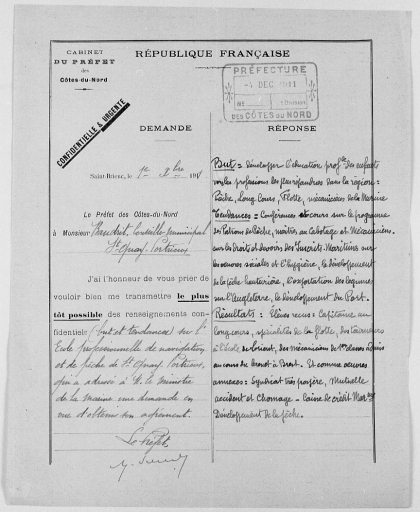 CABINET
DU PRÉFET
des
Côtes-du-Nord
RÉPUBLIQUE FRANÇAISE
PRÉFECTURE
DEC. 1911
DES CÔTES DU NORD
CONFIDENTIELLE & URGENTE
DEMANDE
Saint-Brieuc, le 1er Xbre 191
Le Préfet des Côtes-du-Nord
à Monsieur conseiller municipal
St Quay Portrieux
J'ai l'honneur de vous prier de
vouloir bien me transmettre le plus
tôt possible des renseignements con-
fidentiels (but et tendances) sur l'
Ecole professionnelle de navigation
et de pêche de St Quay Portrieux,
qui a adressé à M. le Ministre
de la marine une demande en
vue d'obtenir son agrément.
Le Préfet,
RÉPONSE
But = Développer l'éducation profle des enfants
vers les professions les plus répandues dans la région :
Pêche, Long-Cours, Flotte, mécaniciens de la Marine
Tendances = Conférences et cours sur le programme
des Patrons de Pêche, maîtres au Cabotage et Mécaniciens.
sur les Droits et devoirs des Inscrits Maritimes sur
les œuvres sociales et l'hygiène, le développement
de la pêche hauturière, l'exportation des légumes
sur l'Angleterre, le développement du Port.
Résultats : Élèves reçus : Capitaine au
long cours, spécialités de la flotte,
à l'école de Lorient, des mécaniciens de
au cours du à Brest. Et comme œuvres
annexes : Syndicat très prospère, Mutuelle
accident et Chomage - Caisse de crédit Marme
Développement de la pêche.